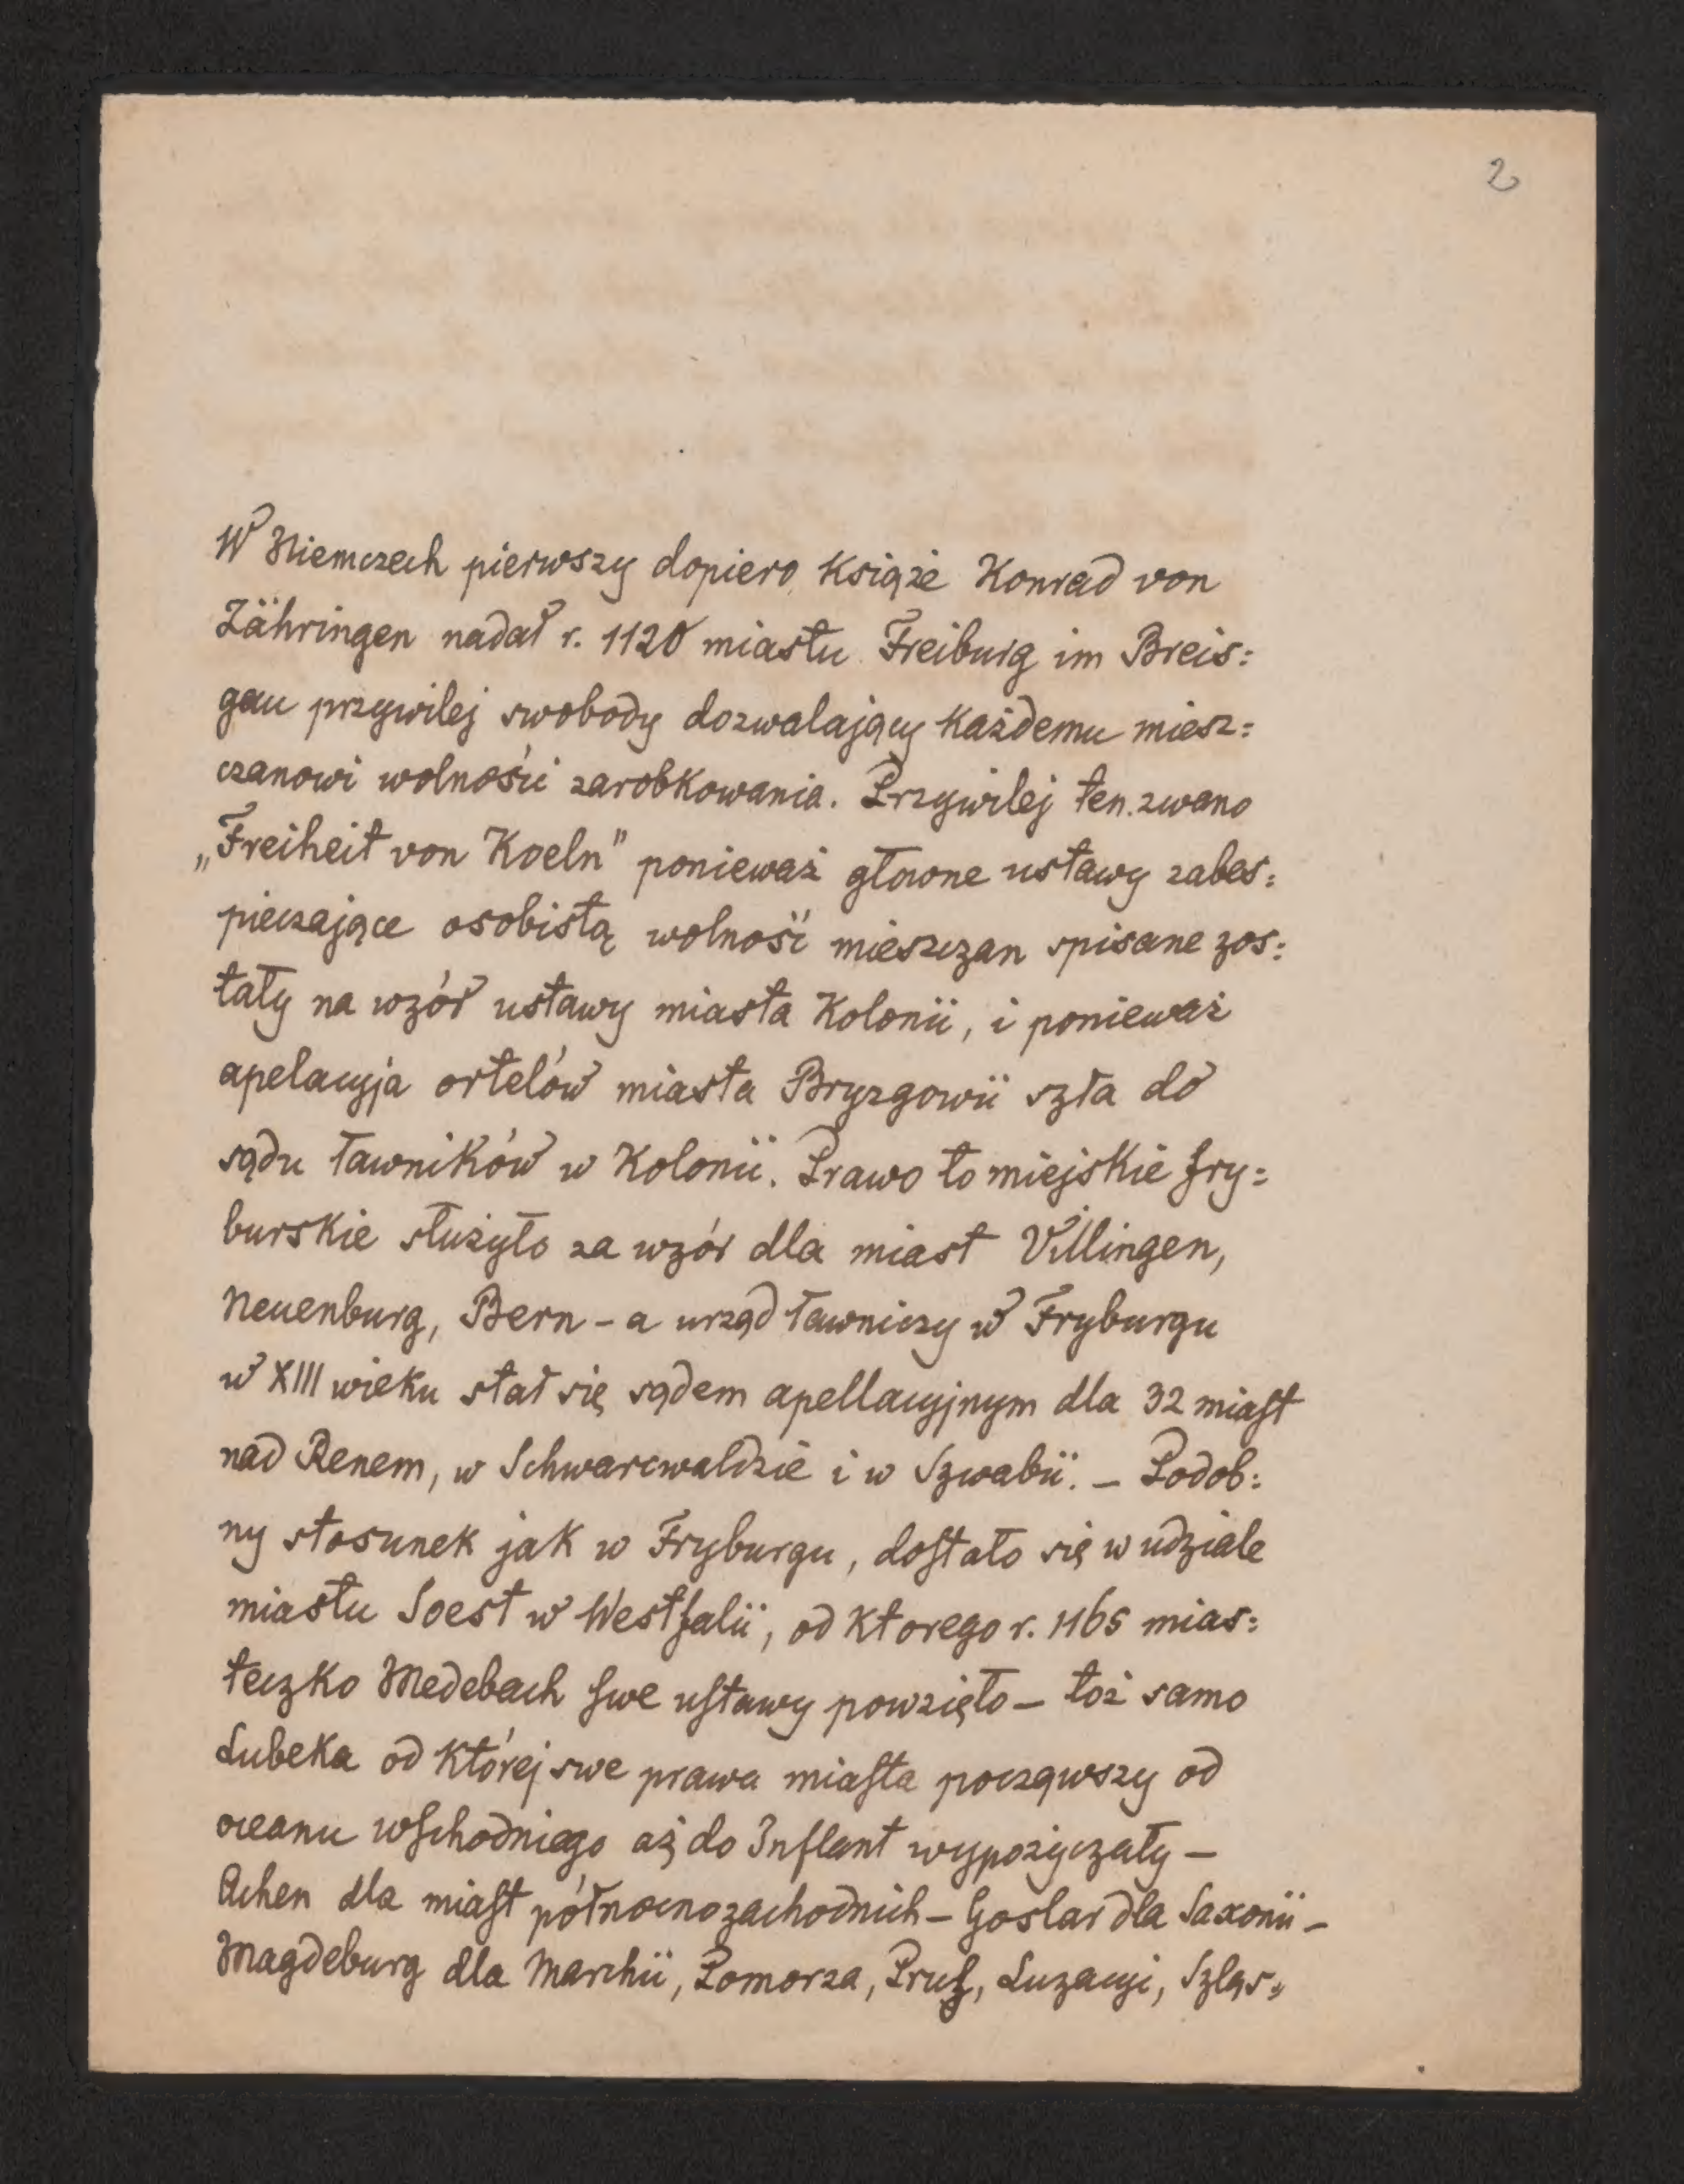 2
W Niemczech pierwszy dopiero książe Konrad von
Zähringen nadał r. 1120 miastu Freiburg im Breis:
gau przywilej swobody dozwalający każdemu miesz:
czanowi wolności zarobkowania. Przywilej ten zwano
„Freiheit von Koeln" ponieważ głowne ustawy zabes:
pieczające osobistą wolność mieszczan spisane zos:
tały na wzór ustawy miasta Kolonii, i ponieważ
apelacyja ortelów miasta Bryzgowii szła do
sądu ławników w Kolonii. Prawo to miejskie fry:
burskie służyło za wzór dla miast Villingen,
Neuenburg, Bern – a urząd ławniczy w Fryburgu
w XIII wieku stał się sądem apellacyjnym dla 32 miast
nad Renem, w Schwarcwaldzie i w Szwabii. – Podob:
ny stosunek jak w Fryburgu, dostało się w udziale
miastu Soest w Westfalii, od ktorego r. 1165 mias:
teczko Medebach swe ustawy powzięło – toż samo
Lubeka od której swe prawa miasta począwszy od
oceanu wschodniego aż do Inflant wypożyczały –
Achen dla miast północnozachodnich – Goslar dla Saxonii –
Magdeburg dla Marchii, Pomorza, Prusz, Luzacyi, Szląs: